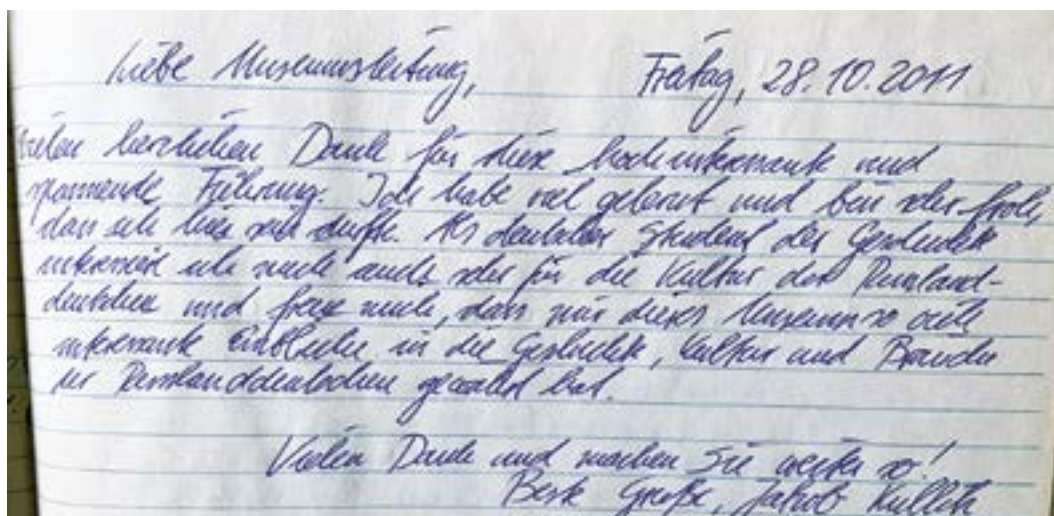 Liebe Museumsleitung, Freitag, 28.10.2011
vielen herzlichen Dank für diese hochinteressante und
spannende Führung. Ich habe viel gelernt und bin sehr froh,
dass ich hier sein durfte. Als deutscher Student der Geschichte
interessiere ich mich auch sehr für die Kultur der Russland-
deutschen und freue mich, dass mir dieses Museum so viele
interessante Einblicke in die Geschichte, Kultur und Bräuche
der Russlanddeutschen gewährt hat.
Vielen Dank und machen Sie weiter so!
Beste Grüße, Jakob